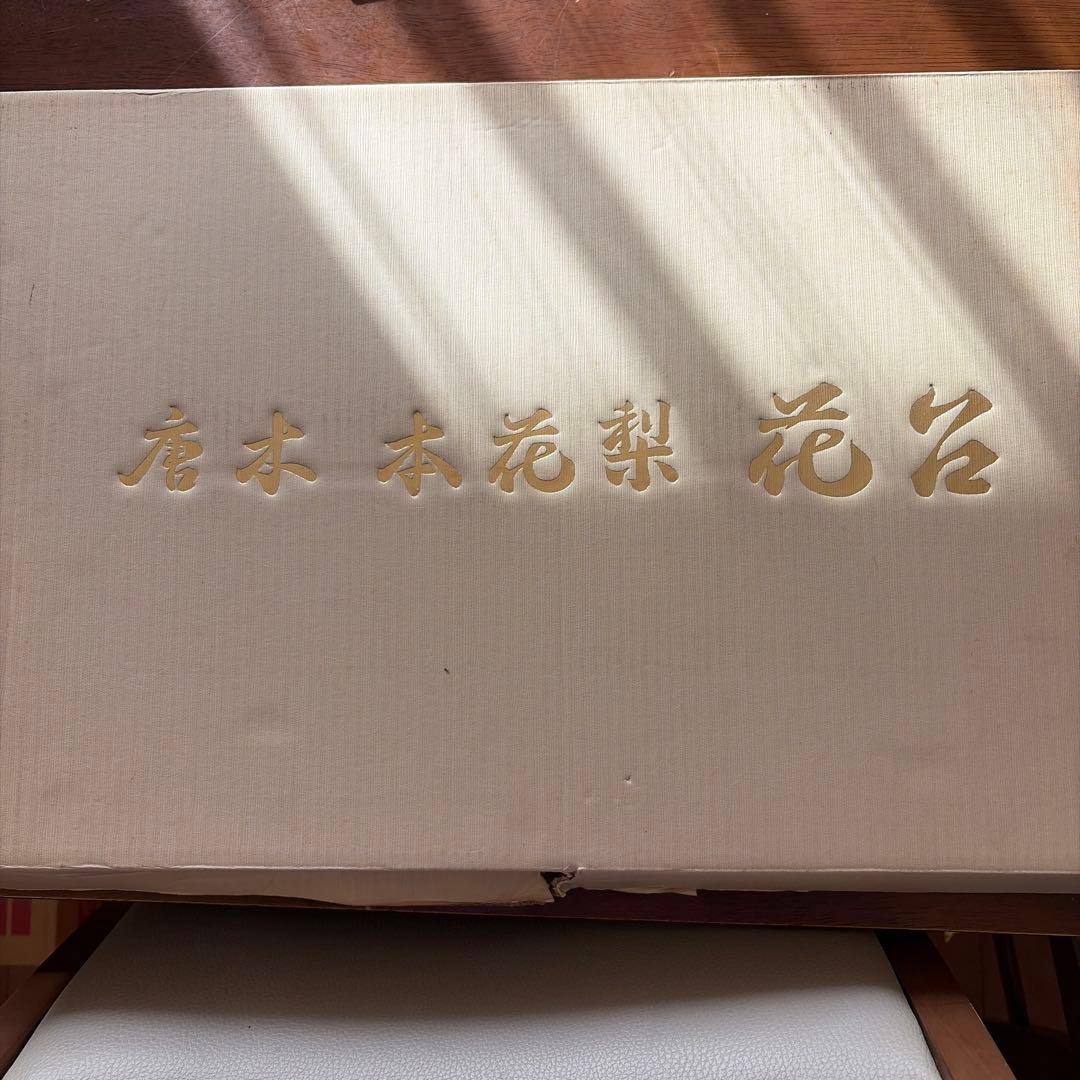 唐木 本花梨 花台